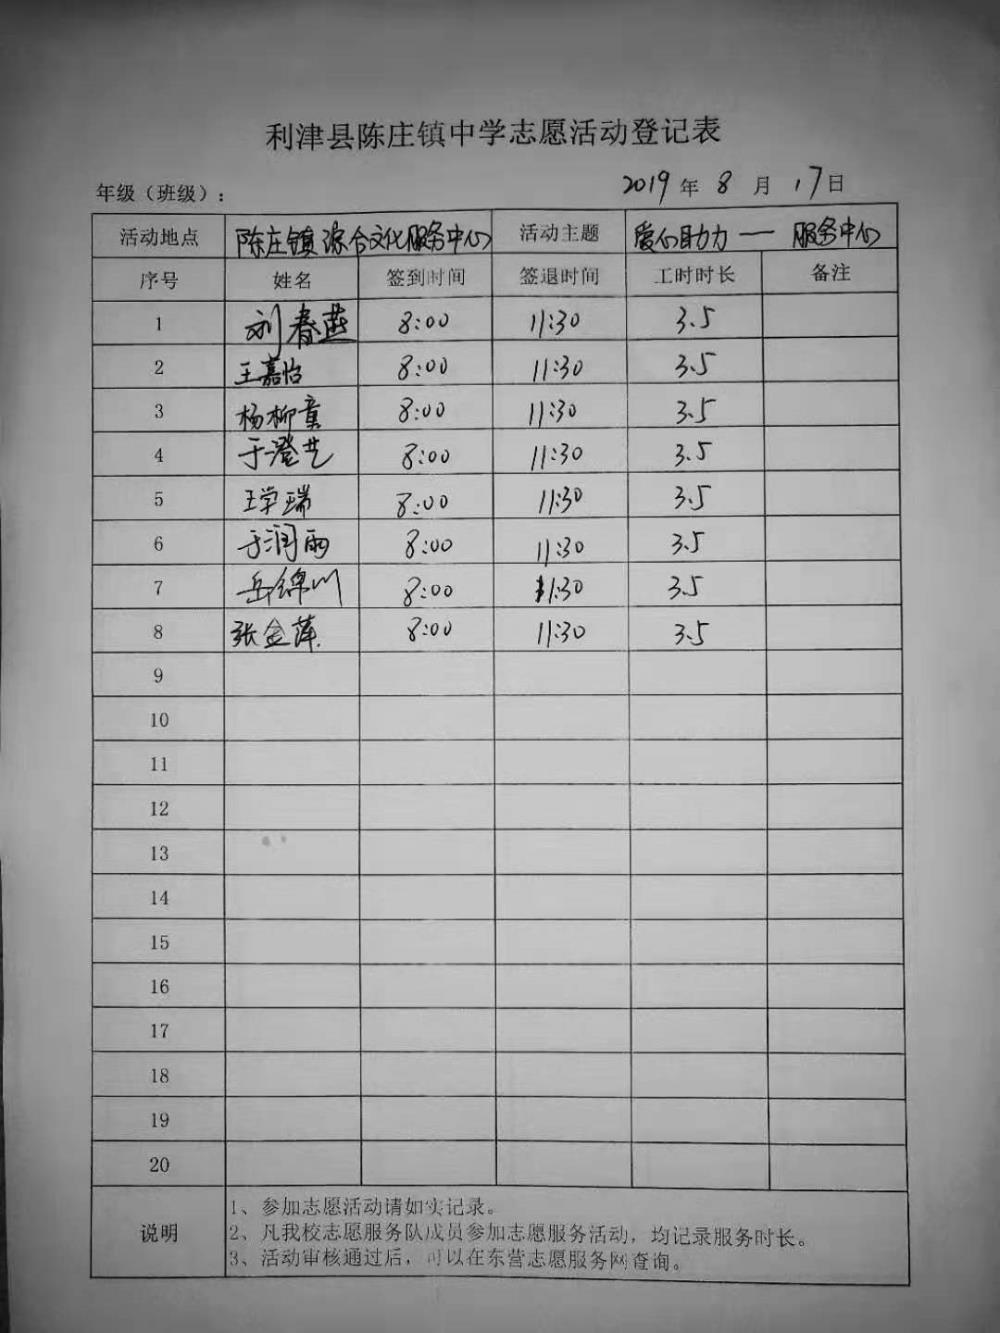 利津县陈庄镇中学志愿活动登记表
年级（班级）： 2019 年 8 月 17 日
活动地点 陈庄镇综合文化服务中心 活动主题 爱心助力 — 服务中心
序号 姓名 签到时间 签退时间 工时时长 备注
1 刘春燕 8:00 11:30 3.5
2 王嘉怡 8:00 11:30 3.5
3 杨柳童 8:00 11:30 3.5
4 于澄艺 8:00 11:30 3.5
5 王学瑞 8:00 11:30 3.5
6 于润雨 8:00 11:30 3.5
7 岳锦川 8:00 11:30 3.5
8 张金萍 8:00 11:30 3.5
9
10
11
12
13
14
15
16
17
18
19
20
说明
1、参加志愿活动请如实记录。
2、凡我校志愿服务队成员参加志愿服务活动，均记录服务时长。
3、活动审核通过后，可以在东营志愿服务网查询。